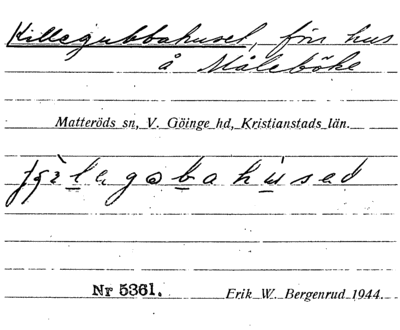 Killegubbahuset, förr hus
å Måleböke
Matteröds sn, V. Göinge hd, Kristianstads län.
Nr 5361. Erik W. Bergenrud 1944.